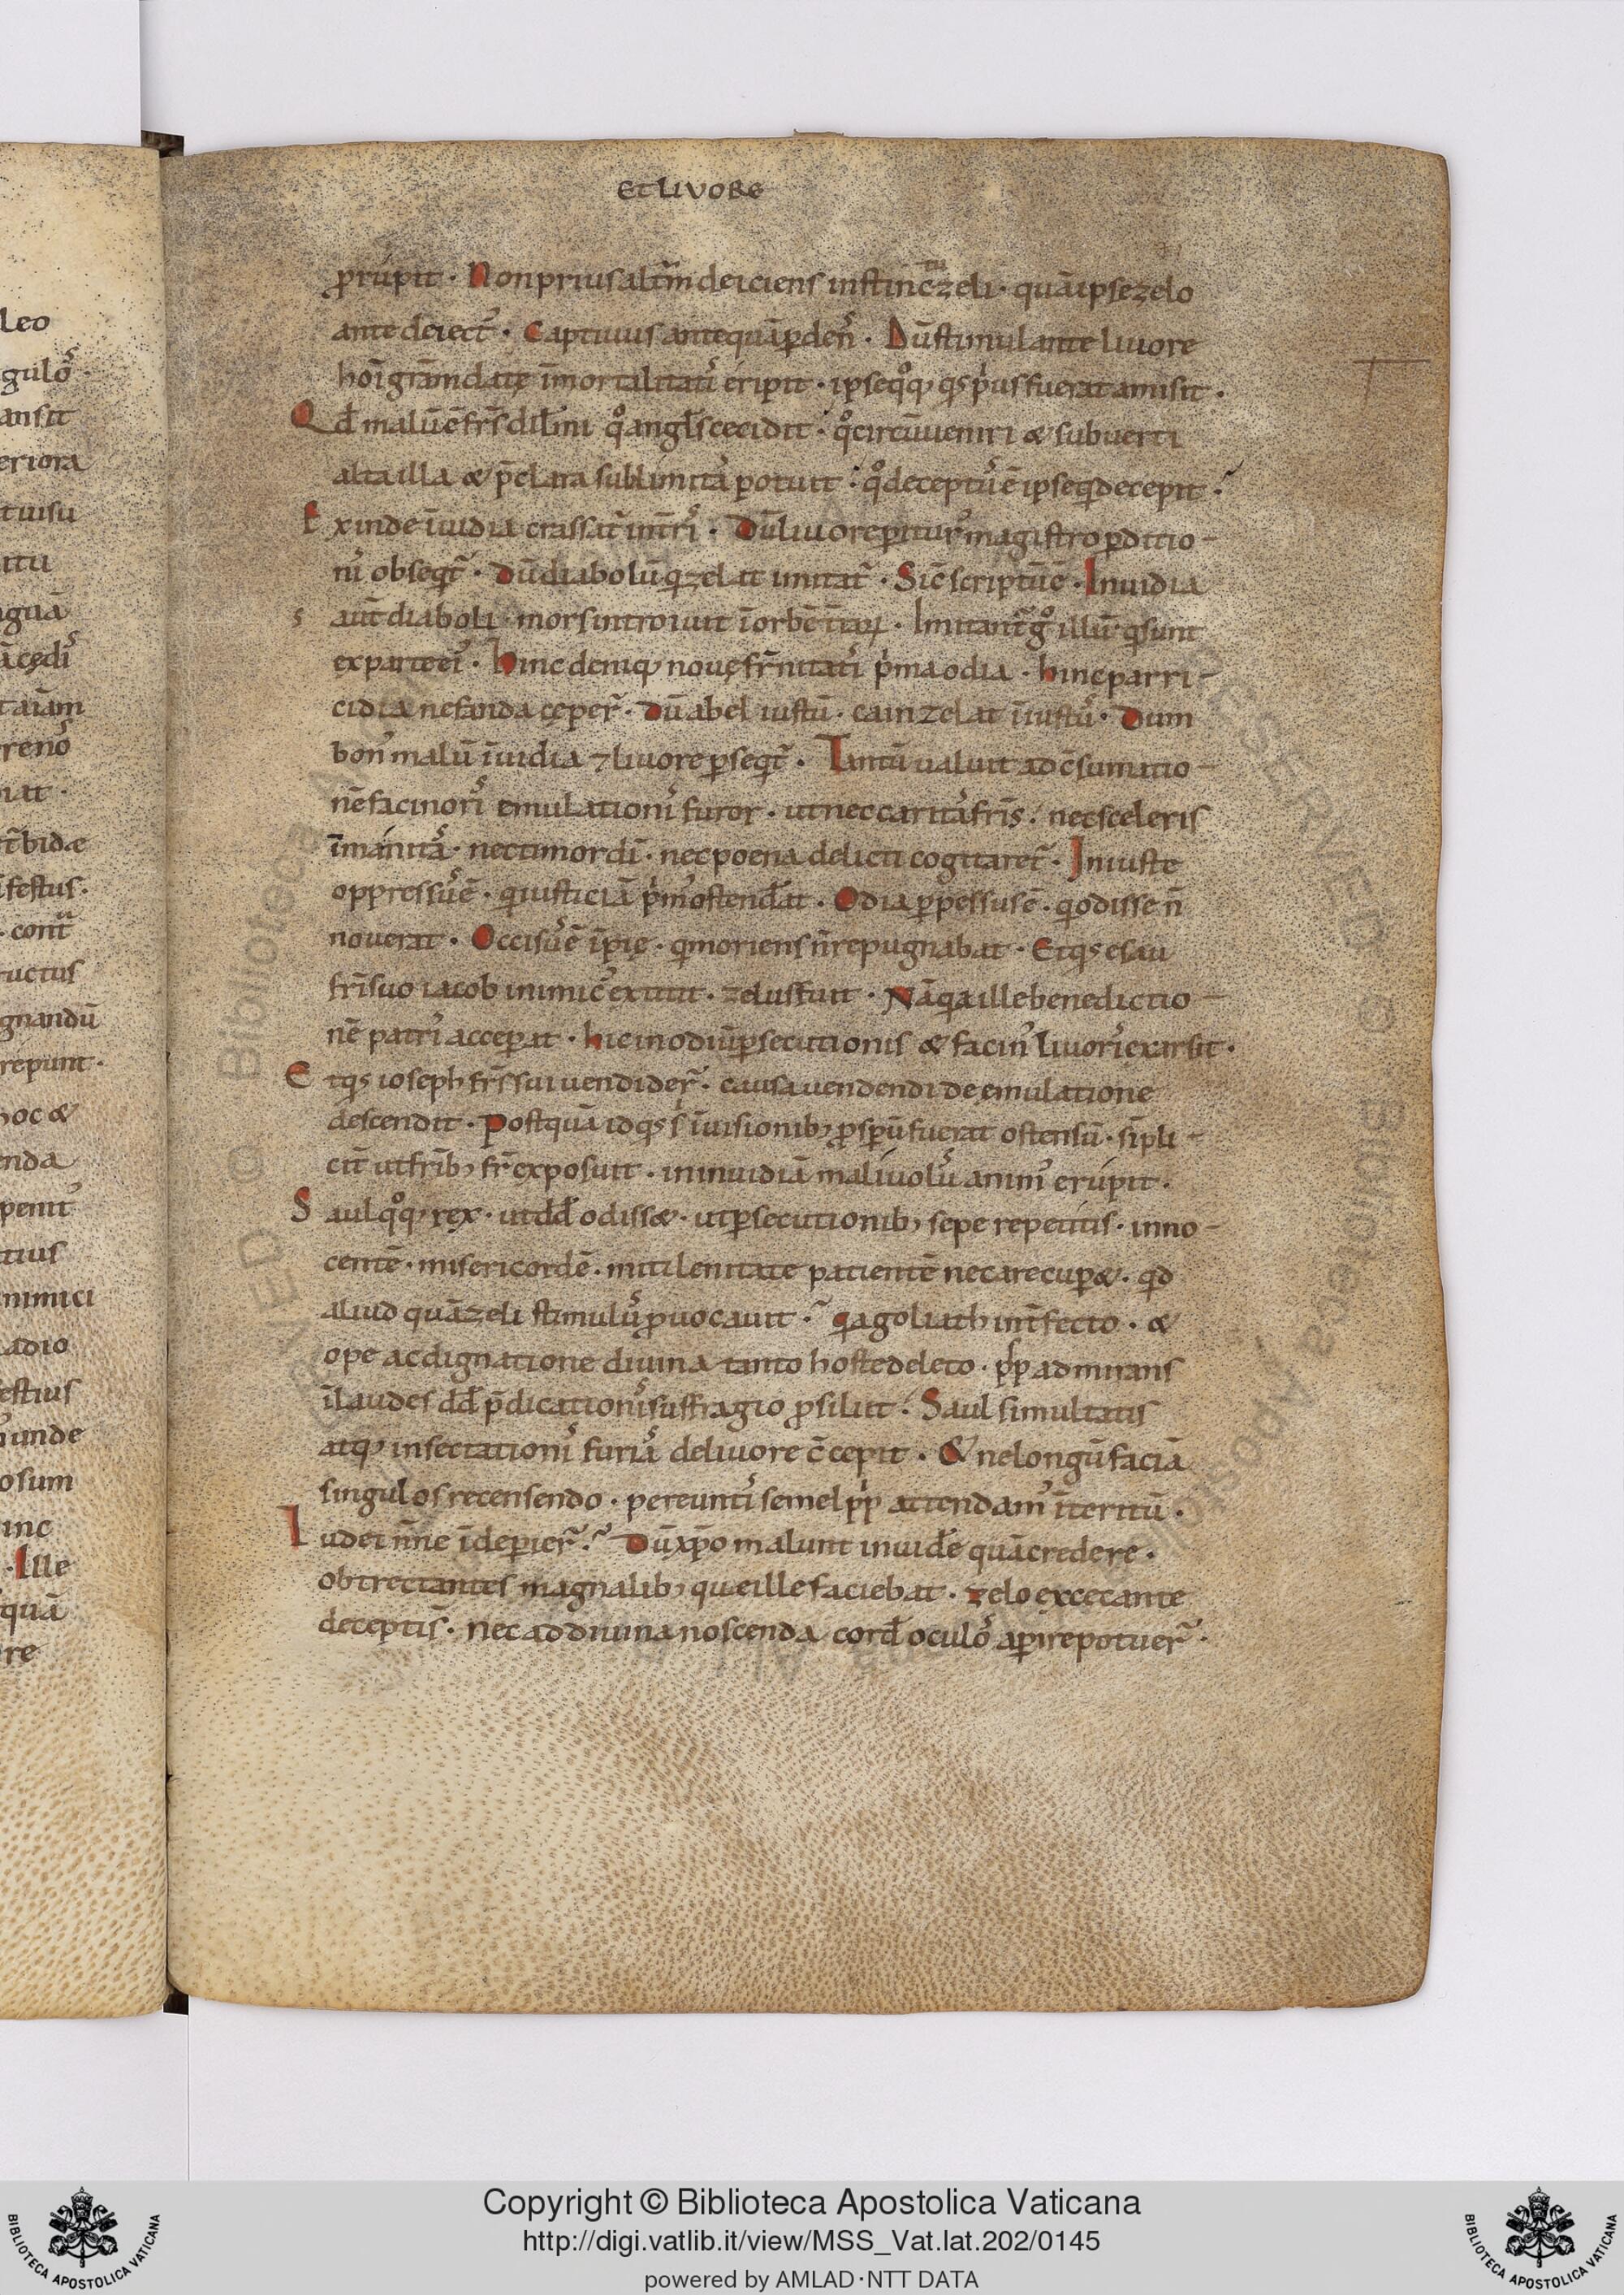 ET LIVORE
prupit · Non prius altm̄ deiciens instinctu zeli · quā ipse zelo
ante deiect᾽ · Captiuus antequā pden᾽s · Dū stimulante liuore
hoi gram date īmortalitatis eripit · ipse qͦq, qs p̓us fuerat amisit ·
Qd malū ē frs dil̄mi qͦ angls cecidit · qͦ circūueniri & subuerti
alta illa & p̄clara sublimitas potuit · qͦ deceptus ē ipse q decepit ·
Exinde īuidia crassat̄ in tr̄is · Dū liuore pitur᾽ magistro pditio-
nis obseqt̄ · Dū diabolū q zelat imitat̄ · Sic̄ scriptū ē · Inuidia
aut̄ diaboli · mors introiuit ī orbē t̄rarꝝ · Imitant̄ gͦ illū q sunt
ex parte ei᾽ · Hinc deniq, nouę fr̄nitatis p̓ma odia · hinc parri-
cidia nefanda cęper̄ · Dū abel iustū · cain zelat īiustus · Dum
bonū malus īuidia ⁊ liuore pseqt̄ · Tantū ualuit ad c̄sumatio-
nē facinoris emulationis furor · ut nec caritas fris · nec sceleris
īmanitas · nec timor dī · nec poena delicti cogitaret̄ · Iniuste
oppressus ē · q iusticiā p̓mus ostend̄at · Odia ppessus ē · q odisse n̄
nouerat · Occisus ē īpie · q moriens n̄ repugnabat · Et qs esau
fri suo iacob inimic᾽ extitit · zelus fuit · Nā qa ille benedictio-
nē patris acceperat · hic in odiū psecutionis & facin᾽ liuoris exarsit ·
Et qs ioseph frs sui uendider̄ · causa uendendi de emulatione
descendit · Postquā id qs s īuisionib, pspū fuerat ostensū · sīpli-
cit̄ ut frib, fr̄ exposuit · in inuidiā maliuolus anim᾽ erupit ·
Saul qͦq, rex · ut dd odiss& · ut psecutionib, sepe repetitis · inno-
centē · misericordē · miti lenitate patientē necare cup& · qd
aliud quā zeli stimulus puocauit · Qa goliath int̄fecto · &
ope ac dignatione diuina tanto hoste deleto · pp admirans
ī laudes dd p̄dicationis suffragio psiliit · Saul simultatis
atq, insectationis furias de liuore c̄cepit · & ne longū faciā
singulos recensendo · pereuntis semel pp attendam᾽ īteritū ·
Iudei nn̄e īde perier̄ · Dū xp̄o malunt inuid̄e quā credere ·
obtrectantes magnalib, que ille faciebat · zelo excecante
deceptis̄ · nec ad diuina noscenda cord̄ oculos apire potuer̄ ·
leo
gulos
ansit
eriora
tuisu
guā
reno
biat ·
t̄bidæ
festus ·
cont̄
ructus
gnandū
repunt ·
hoc &
nda
tius
nimici
adio
estius
unde
osum
inc
Ille
quā
re
Copyright © Biblioteca Apostolica Vaticana
http://digi.vatlib.it/view/MSS_Vat.lat.202/0145
powered by AMLAD·NTT DATA
BIBLIOTECA APOSTOLICA VATICANA
BIBLIOTECA APOSTOLICA VATICANA